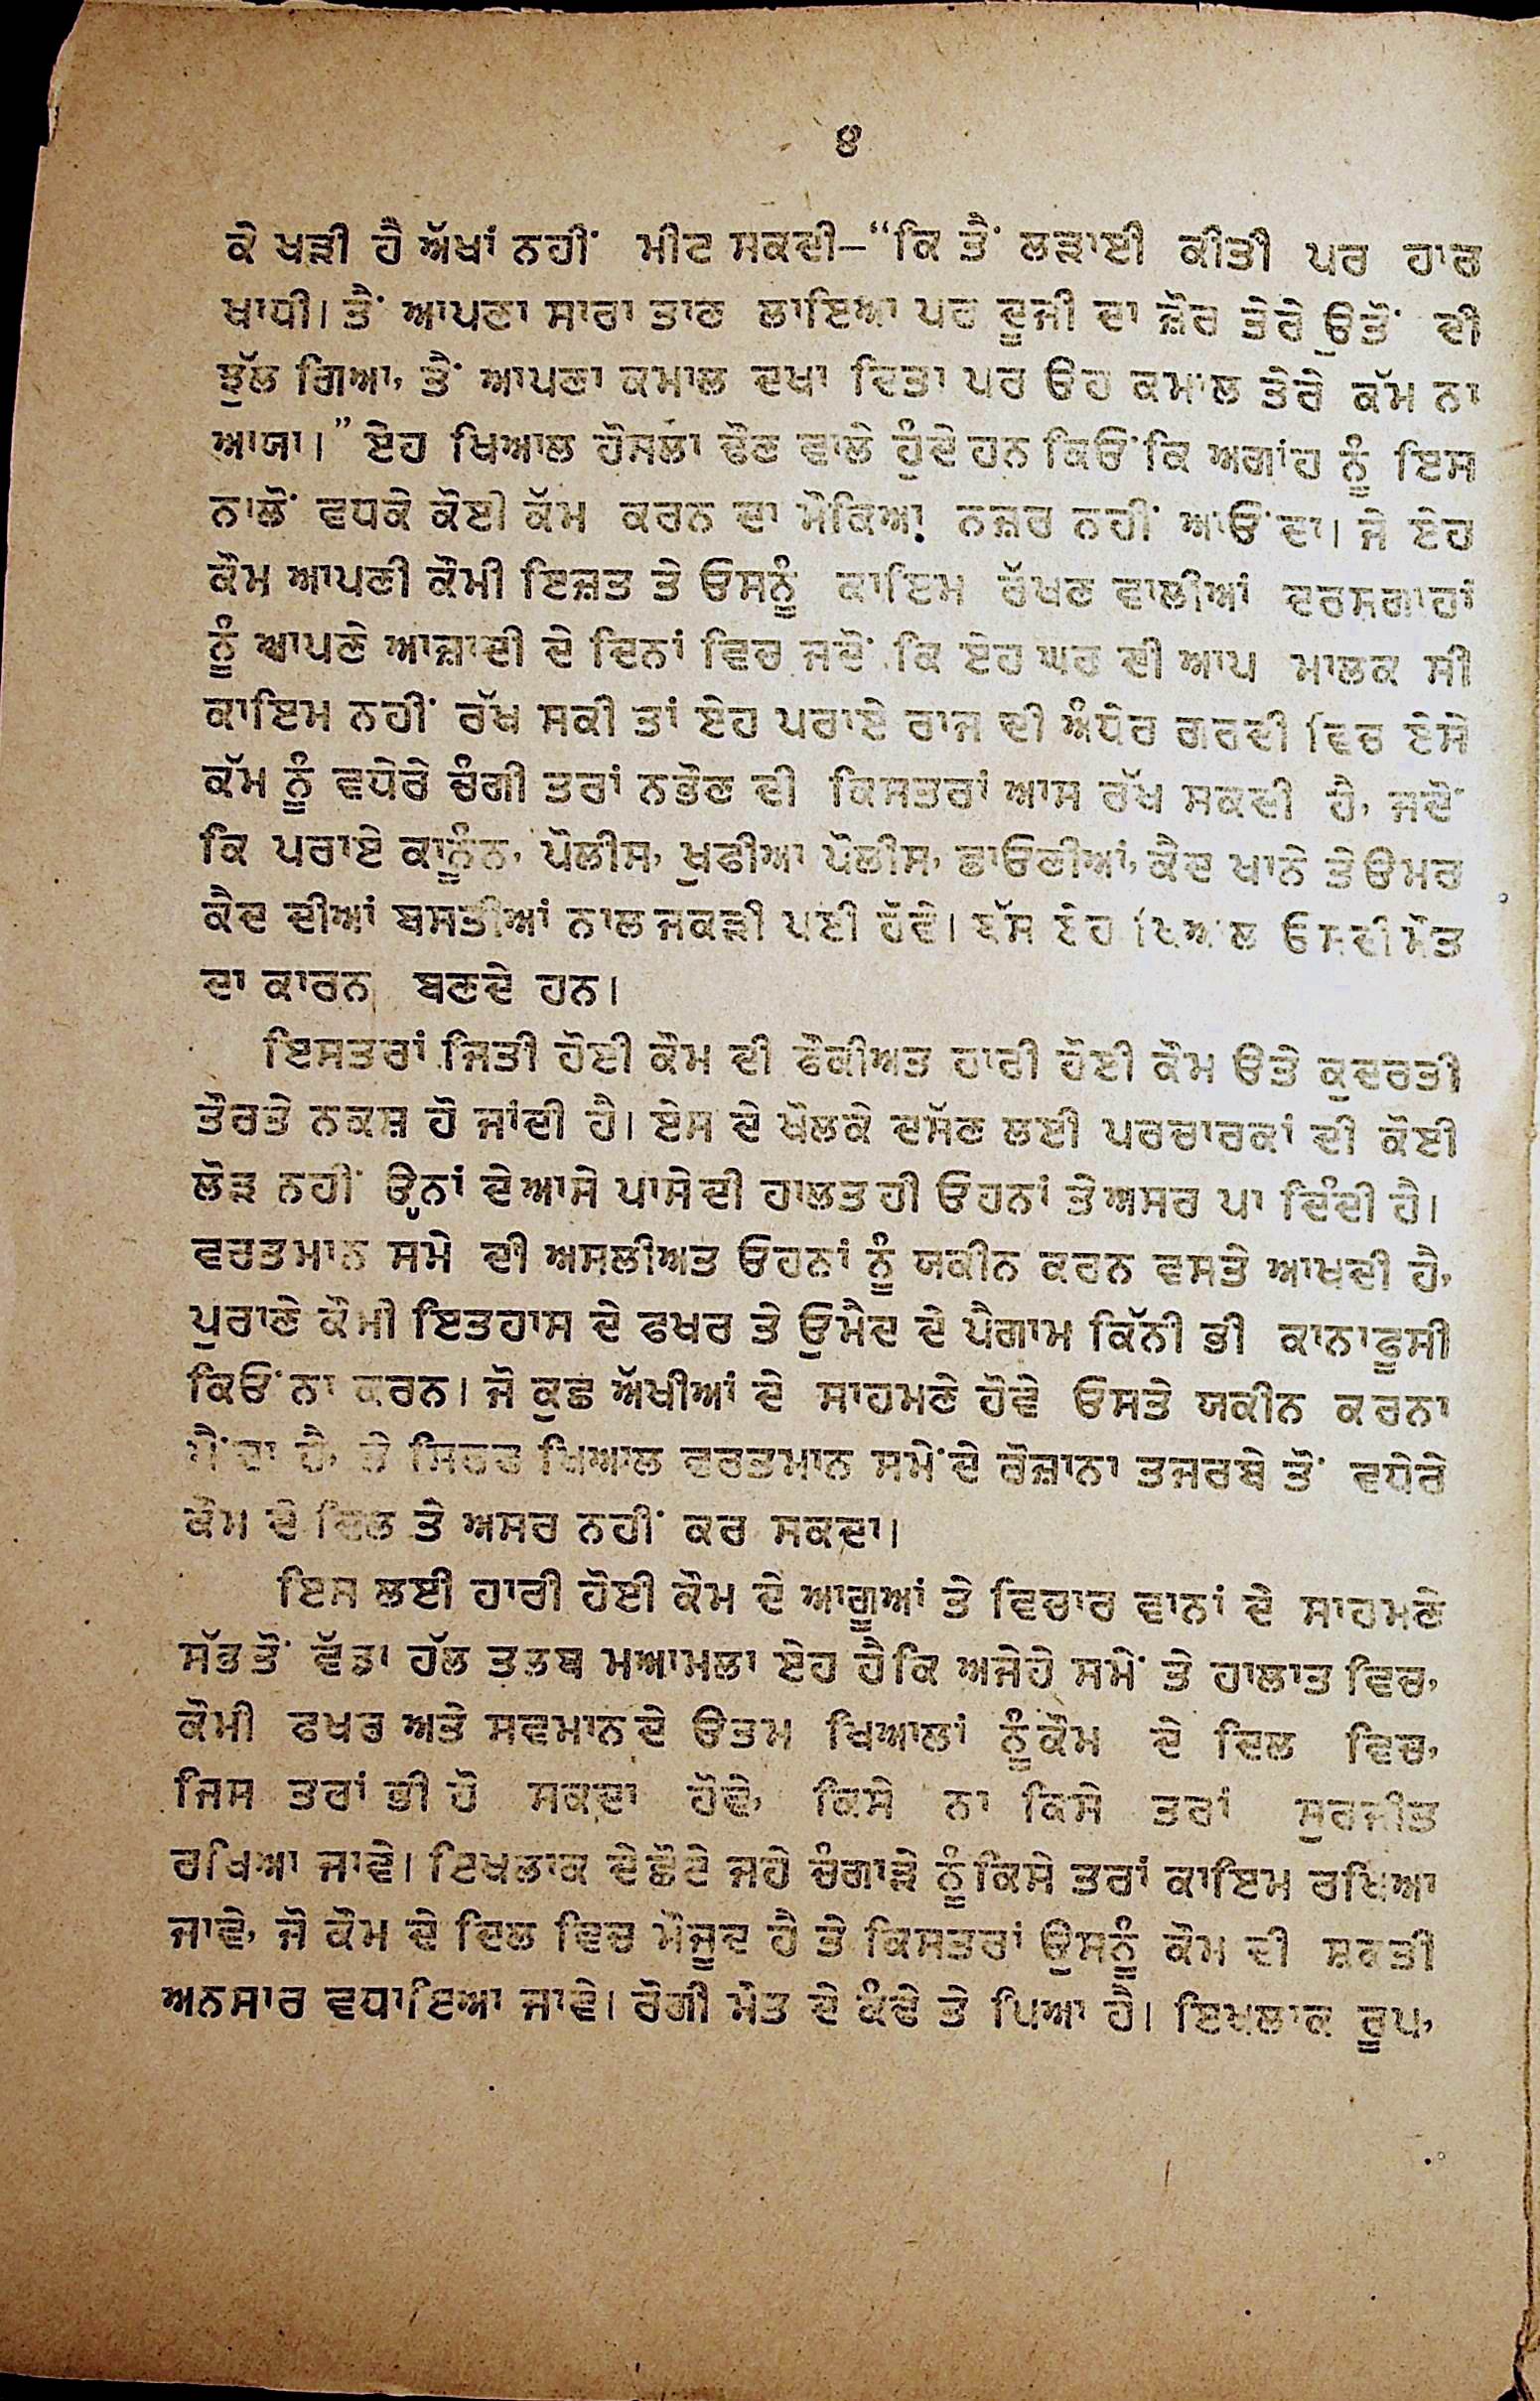 ੪
ਕੇ ਖੜੀ ਹੈ ਅੱਖਾਂ ਨਹੀਂ ਮੀਟ ਸਕਦੀ–“ਕਿ ਤੈਂ ਲੜਾਈ ਕੀਤੀ ਪਰ ਹਾਰ
ਖਾਧੀ। ਤੈਂ ਆਪਣਾ ਸਾਰਾ ਤਾਣ ਲਾਇਆ ਪਰ ਦੂਜੀ ਦਾ ਜ਼ੋਰ ਤੇਰੇ ਉਤੋਂ ਦੀ
ਝੁੱਲ ਗਿਆ, ਤੈਂ ਆਪਣਾ ਕਮਾਲ ਦਖਾ ਦਿਤਾ ਪਰ ਓਹ ਕਮਾਲ ਤੇਰੇ ਕੱਮ ਨਾ
ਆਯਾ।” ਏਹ ਖਿਆਲ ਹੌਸਲਾ ਢੌਣ ਵਾਲੇ ਹੁੰਦੇ ਹਨ ਕਿਓਂਕਿ ਅਗਾਂਹ ਨੂੰ ਇਸ
ਨਾਲੋਂ ਵਧਕੇ ਕੋਈ ਕੱਮ ਕਰਨ ਦਾ ਮੌਕਿਆ ਨਜ਼ਰ ਨਹੀਂ ਆਓਂਦਾ। ਜੇ ਏਹ
ਕੌਮ ਆਪਣੀ ਕੌਮੀ ਇਜ਼ਤ ਤੇ ਓਸਨੂੰ ਕਾਇਮ ਰੱਖਣ ਵਾਲੀਆਂ ਦਰਸਗਾਹਾਂ
ਨੂੰ ਆਪਣੇ ਆਜ਼ਾਦੀ ਦੇ ਦਿਨਾਂ ਵਿਚ ਜਦੋਂ ਕਿ ਏਹ ਘਰ ਦੀ ਆਪ ਮਾਲਕ ਸੀ
ਕਾਇਮ ਨਹੀਂ ਰੱਖ ਸਕੀ ਤਾਂ ਏਹ ਪਰਾਏ ਰਾਜ ਦੀ ਅੰਧੇਰ ਗਰਦੀ ਵਿਚ ਏਸੇ
ਕੱਮ ਨੂੰ ਵਧੇਰੇ ਚੰਗੀ ਤਰਾਂ ਨਭੌਣ ਦੀ ਕਿਸਤਰਾਂ ਆਸ ਰੱਖ ਸਕਦੀ ਹੈ, ਜਦੋਂ
ਕਿ ਪਰਾਏ ਕਾਨੂੰਨ, ਪੋਲੀਸ, ਖੁਫੀਆ ਪੋਲੀਸ, ਛਾਓਣੀਆਂ, ਕੈਦ ਖਾਨੇ ਤੇ ਓਮਰ
ਕੈਦ ਦੀਆਂ ਬਸਤੀਆਂ ਨਾਲ ਜਕੜੀ ਪਈ ਹੋਵੇ। ਬੱਸ ਏਹ ਖਿਆਲ ਓਸਦੀ ਮੌਤ
ਦਾ ਕਾਰਨ ਬਣਦੇ ਹਨ।
ਇਸਤਰਾਂ ਜਿਤੀ ਹੋਈ ਕੌਮ ਦੀ ਫੌਕੀਅਤ ਹਾਰੀ ਹੋਈ ਕੌਮ ਓਤੇ ਕੁਦਰਤੀ
ਤੌਰਤੇ ਨਕਸ਼ ਹੋ ਜਾਂਦੀ ਹੈ। ਏਸ ਦੇ ਖੋਲਕੇ ਦਸੱਣ ਲਈ ਪਰਚਾਰਕਾਂ ਦੀ ਕੋਈ
ਲੋੜ ਨਹੀਂ ਉਨਾਂ ਦੇ ਆਸੇ ਪਾਸੇ ਦੀ ਹਾਲਤ ਹੀ ਓਹਨਾਂ ਤੇ ਅਸਰ ਪਾ ਦਿੰਦੀ ਹੈ।
ਵਰਤਮਾਨ ਸਮੇ ਦੀ ਅਸਲੀਅਤ ਓਹਨਾਂ ਨੂੰ ਯਕੀਨ ਕਰਨ ਵਸਤੇ ਆਖਦੀ ਹੈ,
ਪੁਰਾਣੇ ਕੌਮੀ ਇਤਹਾਸ ਦੇ ਫਖਰ ਤੇ ਉਮੈਦ ਦੇ ਪੈਗਾਮ ਕਿੱਨੀ ਭੀ ਕਾਨਾਫੂਸੀ
ਕਿਓਂ ਨਾ ਕਰਨ। ਜੋ ਕੁਛ ਅੱਖੀਆਂ ਦੇ ਸਾਹਮਣੇ ਹੋਵੇ ਓਸਤੇ ਯਕੀਨ ਕਰਨਾ
ਪੈਂਦਾ ਹੈ, ਤੇ ਸਿਰਫ ਖਿਆਲ ਵਰਤਮਾਨ ਸਮੇਂ ਦੇ ਰੋਜ਼ਾਨਾ ਤਜਰਬੇ ਤੋਂ ਵਧੇਰੇ
ਕੌਮ ਦੇ ਦਿਲ ਤੇ ਅਸਰ ਨਹੀਂ ਕਰ ਸਕਦਾ।
ਇਸ ਲਈ ਹਾਰੀ ਹੋਈ ਕੌਮ ਦੇ ਆਗੂਆਂ ਤੇ ਵਿਚਾਰ ਵਾਨਾਂ ਦੇ ਸਾਹਮਣੇ
ਸੱਭ ਤੋਂ ਵੱਡਾ ਹੱਲ ਤਲਬ ਮਆਮਲਾ ਏਹ ਹੈ ਕਿ ਅਜੇਹੇ ਸਮੇਂ ਤੇ ਹਾਲਾਤ ਵਿਚ,
ਕੌਮੀ ਫਖਰ ਅਤੇ ਸਵਮਾਨ ਦੇ ਓਤਮ ਖਿਆਲਾਂ ਨੂੰ ਕੌਮ ਦੇ ਦਿਲ ਵਿਚ,
ਜਿਸ ਤਰਾਂ ਭੀ ਹੋ ਸਕਦਾ ਹੋਵੇ, ਕਿਸੇ ਨਾ ਕਿਸੇ ਤਰਾਂ ਸੁਰਜੀਤ
ਰਖਿਆ ਜਾਵੇ। ਇਖਲਾਕ ਦੇ ਛੋਟੇ ਜਹੇ ਚੰਗਾੜੇ ਨੂੰ ਕਿਸੇ ਤਰਾਂ ਕਾਇਮ ਰਖਿਆ
ਜਾਵੇ, ਜੋ ਕੌਮ ਦੇ ਦਿਲ ਵਿਚ ਮੌਜੂਦ ਹੈ ਤੇ ਕਿਸਤਰਾਂ ਉਸਨੂੰ ਕੌਮ ਦੀ ਸ਼ਕਤੀ
ਅਨਸਾਰ ਵਧਾਇਆ ਜਾਵੇ। ਰੋਗੀ ਮੌਤ ਦੇ ਕੰਢੇ ਤੇ ਪਿਆ ਹੈ। ਇਖਲਾਕ ਰੂਪ,